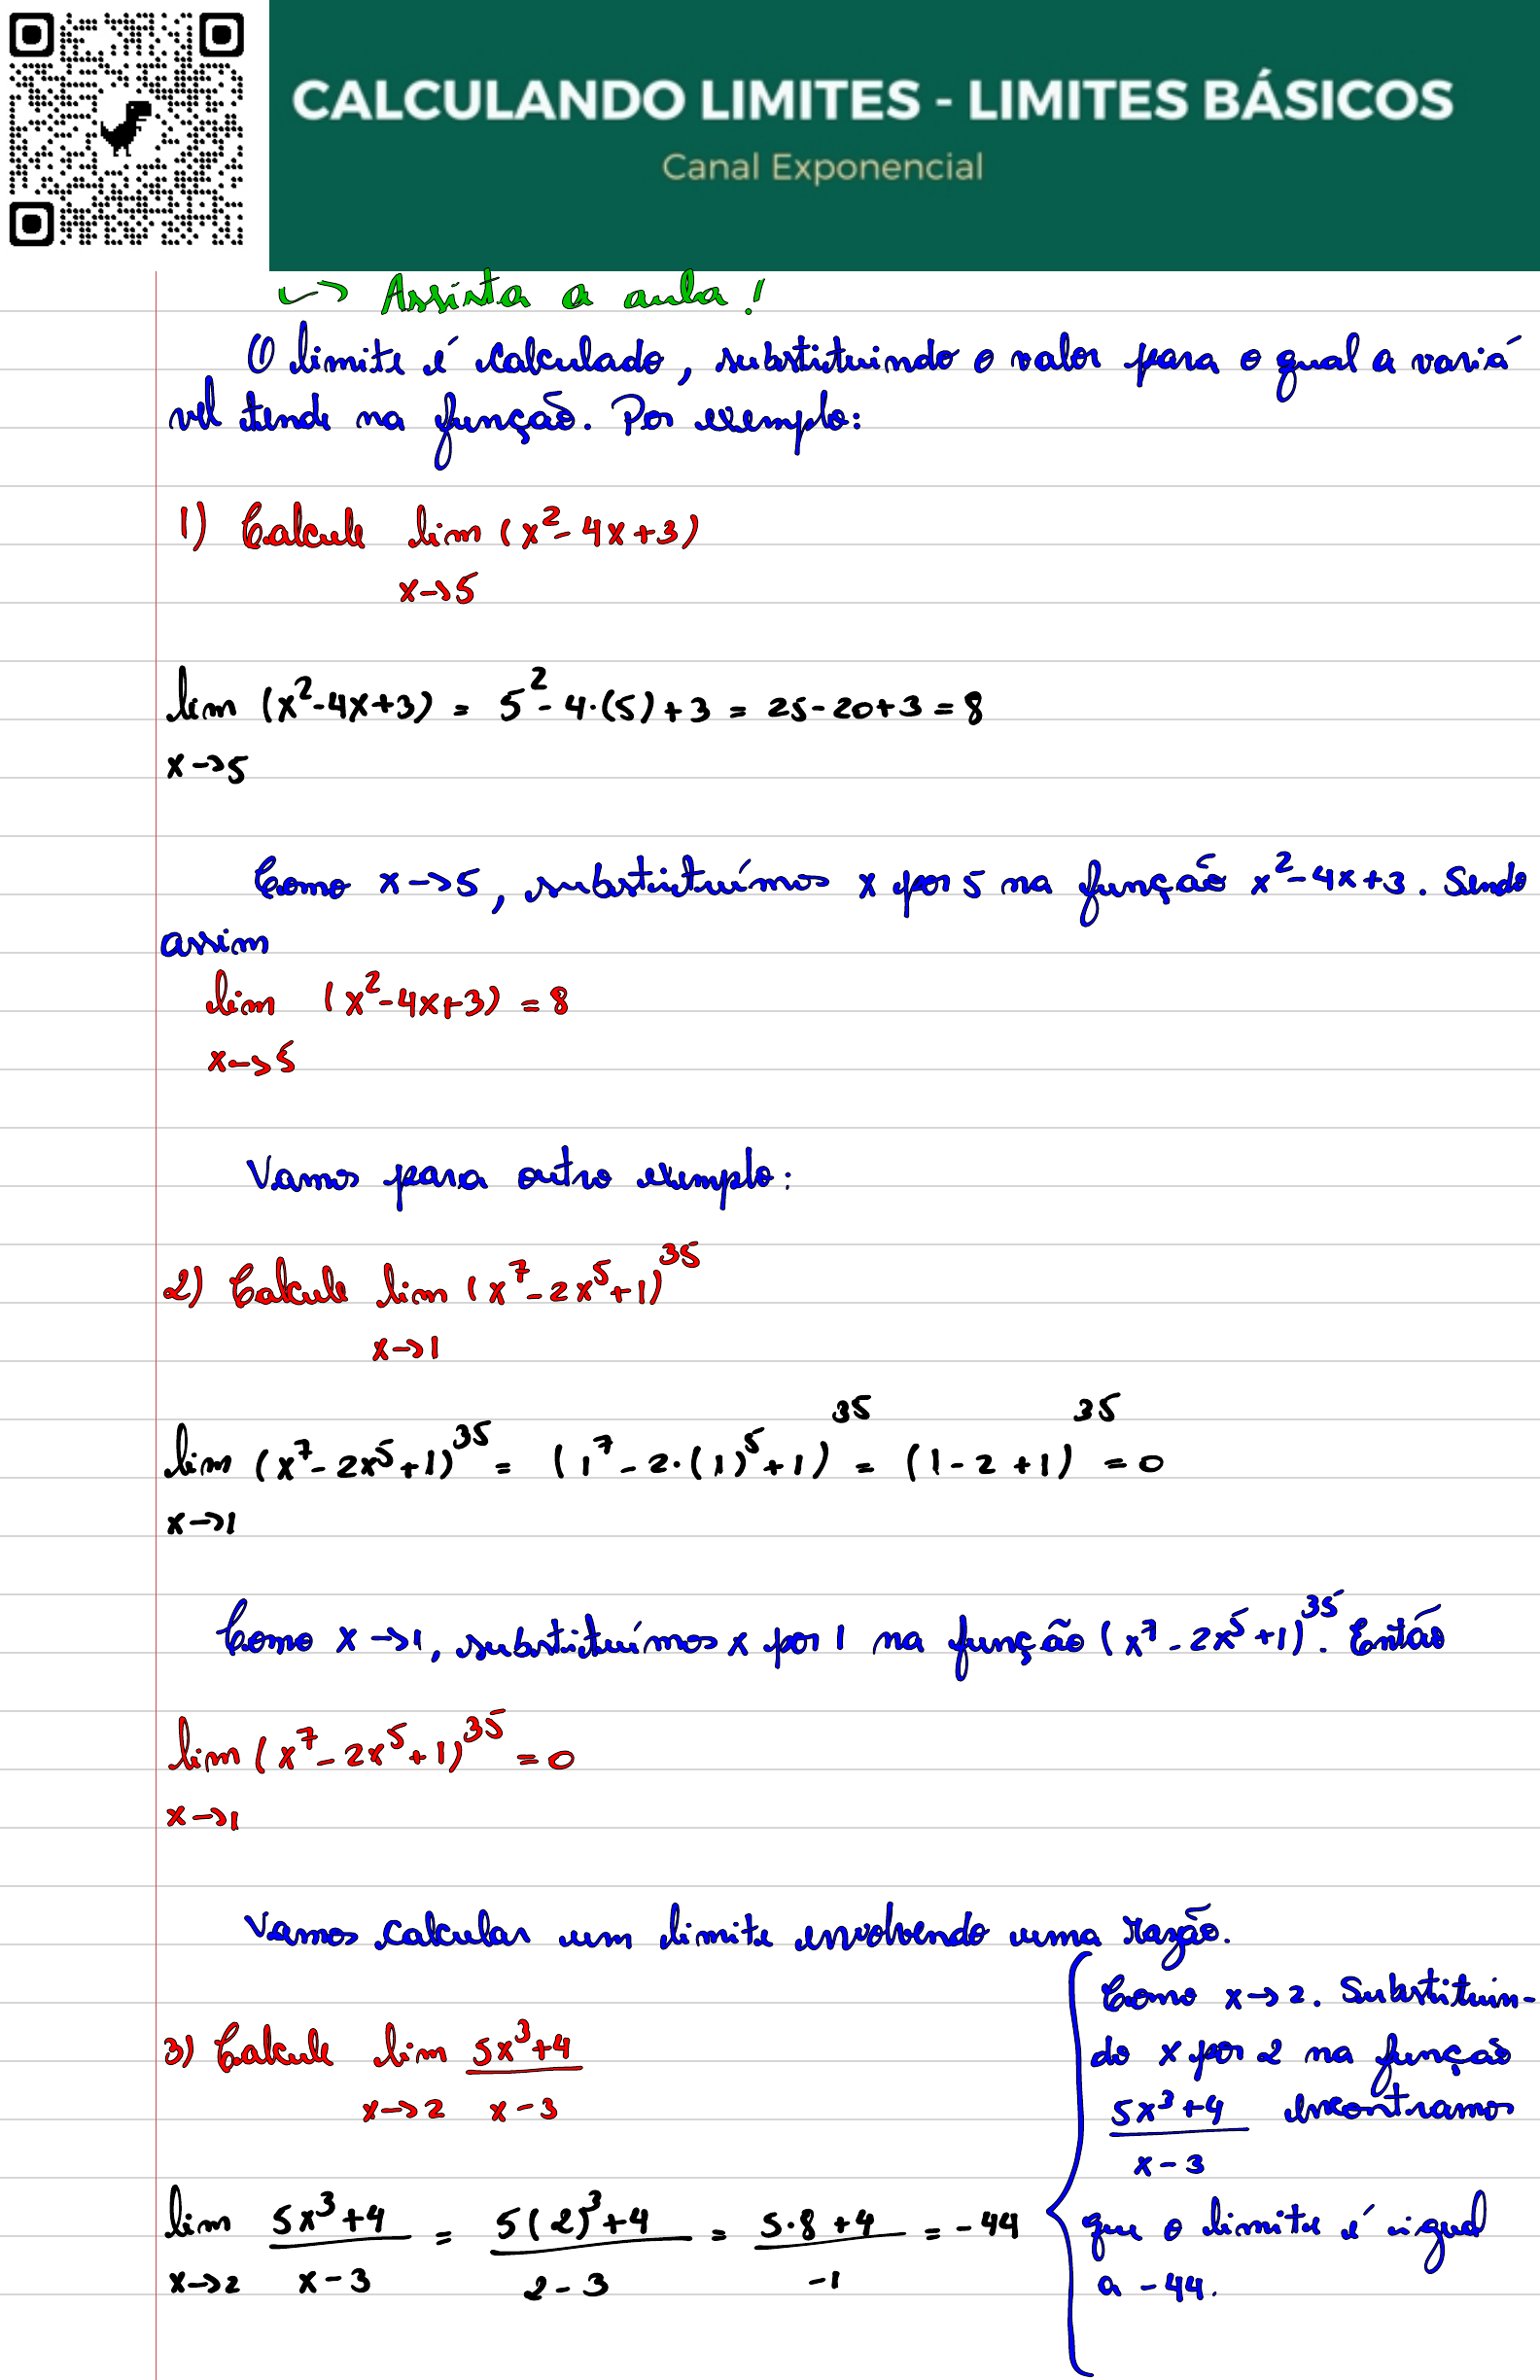 CALCULANDO LIMITES - LIMITES BÁSICOS
Canal Exponencial
↪ Assista a aula!
O limite é calculado, substituindo o valor para o qual a variá
vel tende na função. Por exemplo:
1) Calcule lim (x²-4x+3)
x→5
lim (x²-4x+3) = 5²-4·(5)+3 = 25-20+3=8
x→5
Como x→5, substituímos x por 5 na função x²-4x+3. Sendo
assim
lim (x²-4x+3) = 8
x→5
Vamos para outro exemplo:
2) Calcule lim (x⁷-2x⁵+1)³⁵
x→1
lim (x⁷-2x⁵+1)³⁵ = (1⁷-2·(1)⁵+1)³⁵ = (1-2+1)³⁵ = 0
x→1
Como x→1, substituímos x por 1 na função (x⁷-2x⁵+1)³⁵. Então
lim (x⁷-2x⁵+1)³⁵ = 0
x→1
Vamos calcular um limite envolvendo uma razão.
3) Calcule lim 5x³+4
x→2 x-3
lim 5x³+4 = 5(2)³+4 = 5·8+4 = -44
x→2 x-3 2-3 -1
Como x→2. Substituin-
do x por 2 na função
5x³+4 encontramos
x-3
que o limite é igual
a -44.